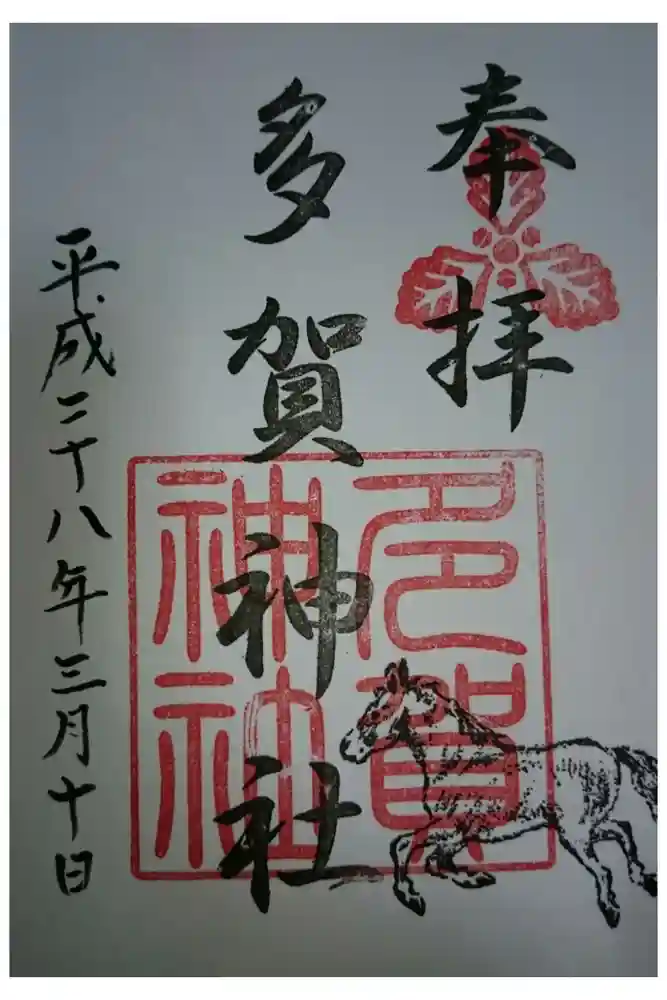 奉拝
多賀神社
多賀神社
平成二十八年三月十日